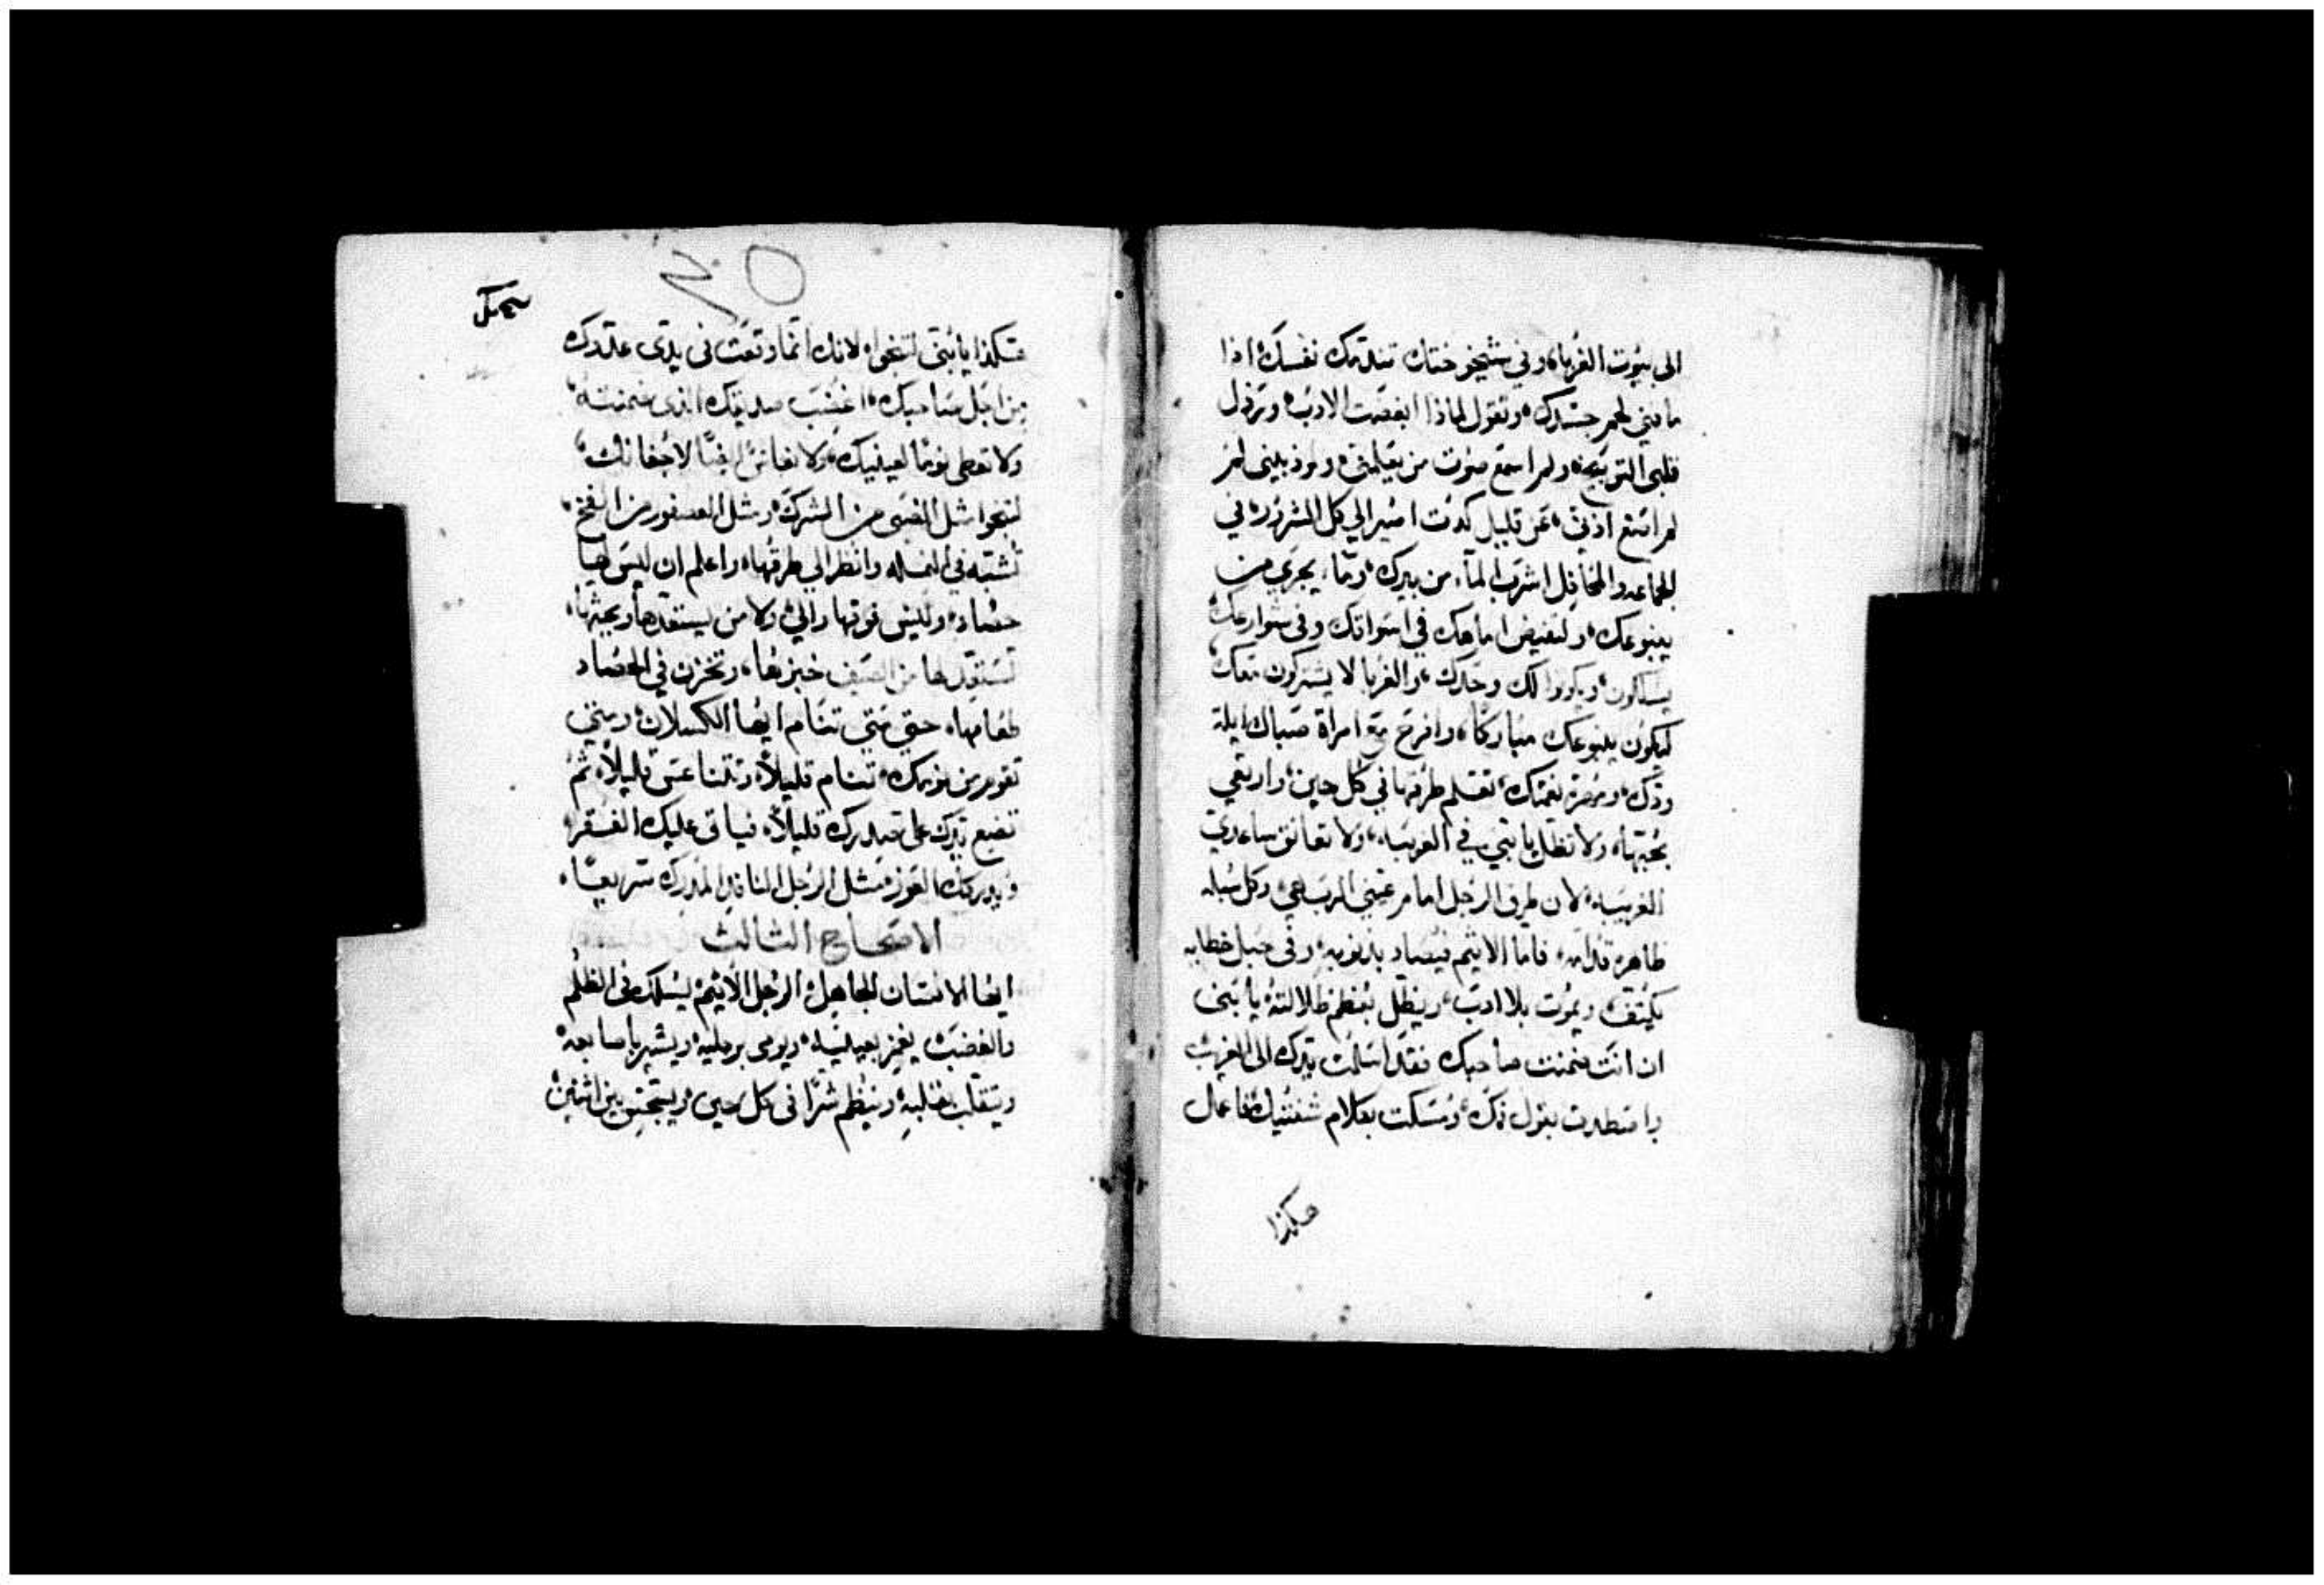 الى بيوت الغرباء، وفي شيخوختك تندمك نفسك، اذا
ما فني لحم جسدك، وتقول لماذا ابغضت الادب، وترذل
قلبي التوبيخ، ولم اسمع صوت من يعلمني، ومؤذبيني لم
لم اتبع اذني، عن قليل كدت اصير الي كل الشرور، في
الجماعه والمحافل اشرب الماء من بيرك، وما يجري من
ينبوعك، ولتفيض امياهك في اسواقك وفي شوارعك
يسلكون، ويكونوا لك وحدك، والغربا لا يشتركون معك،
ليكون ينبوعك مباركًا، وافرح مع امراة صباك ايلة
ودك، ومهرة نعمتك، تعلم طرقها في كل حين، وارتقي
بمحبتها، ولا تظل يا بني في الغريبه، ولا تعانق ساعدي
الغريبه، لان طرق الرجل امام عيني الرب هي، وكل سبله
ظاهره قدامه، فاما الاثيم فيصاد بذنوبه، وفي حبل خطايه
يكتف، ويموت بلا ادب، ويظل بعظم ظلالته، يا بني
ان انت ضمنت صاحبك فقد اسلمت يدك الى الغريب
واصطدت بقول فمك، ومسكت بكلام شفتيك، فاعمل
هكذا
هكذا يا بني لتنجوا، لانك انما وقعت في يدي عدوك
من اجل صاحبك، اغضب صديقك الذي ضمنته،
ولا تعطي نومًا لعينيك، ولا نعاسًا ايضًا لاجفانك،
لتنجوا مثل الضبي من الشرك، ومثل العصفور من الفخ،
تشبه في النمله وانظر الي طرقها، واعلم ان ليس لها
حصاد، وليس فوقها والي، ولا من يستفقدها ويحثها،
تستفقد لها من الصيف خبزها، وتخزن في الحصاد
طعامها، حتي متي تنام ايها الكسلان، ومتي
تقوم من نومك، تنام قليلًا، وتتناعس قليلًا، ثم
تضع يدك على صدرك قليلًا، فياتي عليك الفقر،
ويدركك العوز، مثل الرجل النافد المدرك سريعًا،
الاصحاح الثالث
ايها الانسان الجاهل، الرجل الاثيم، يسلك في الظلم
والغضب، يغمز بعينيه، ويومي برجليه، ويشير باصابعه،
ويتقلب بقلبه، وينظم شرًا في كل حين، ويسجن بين اثنين